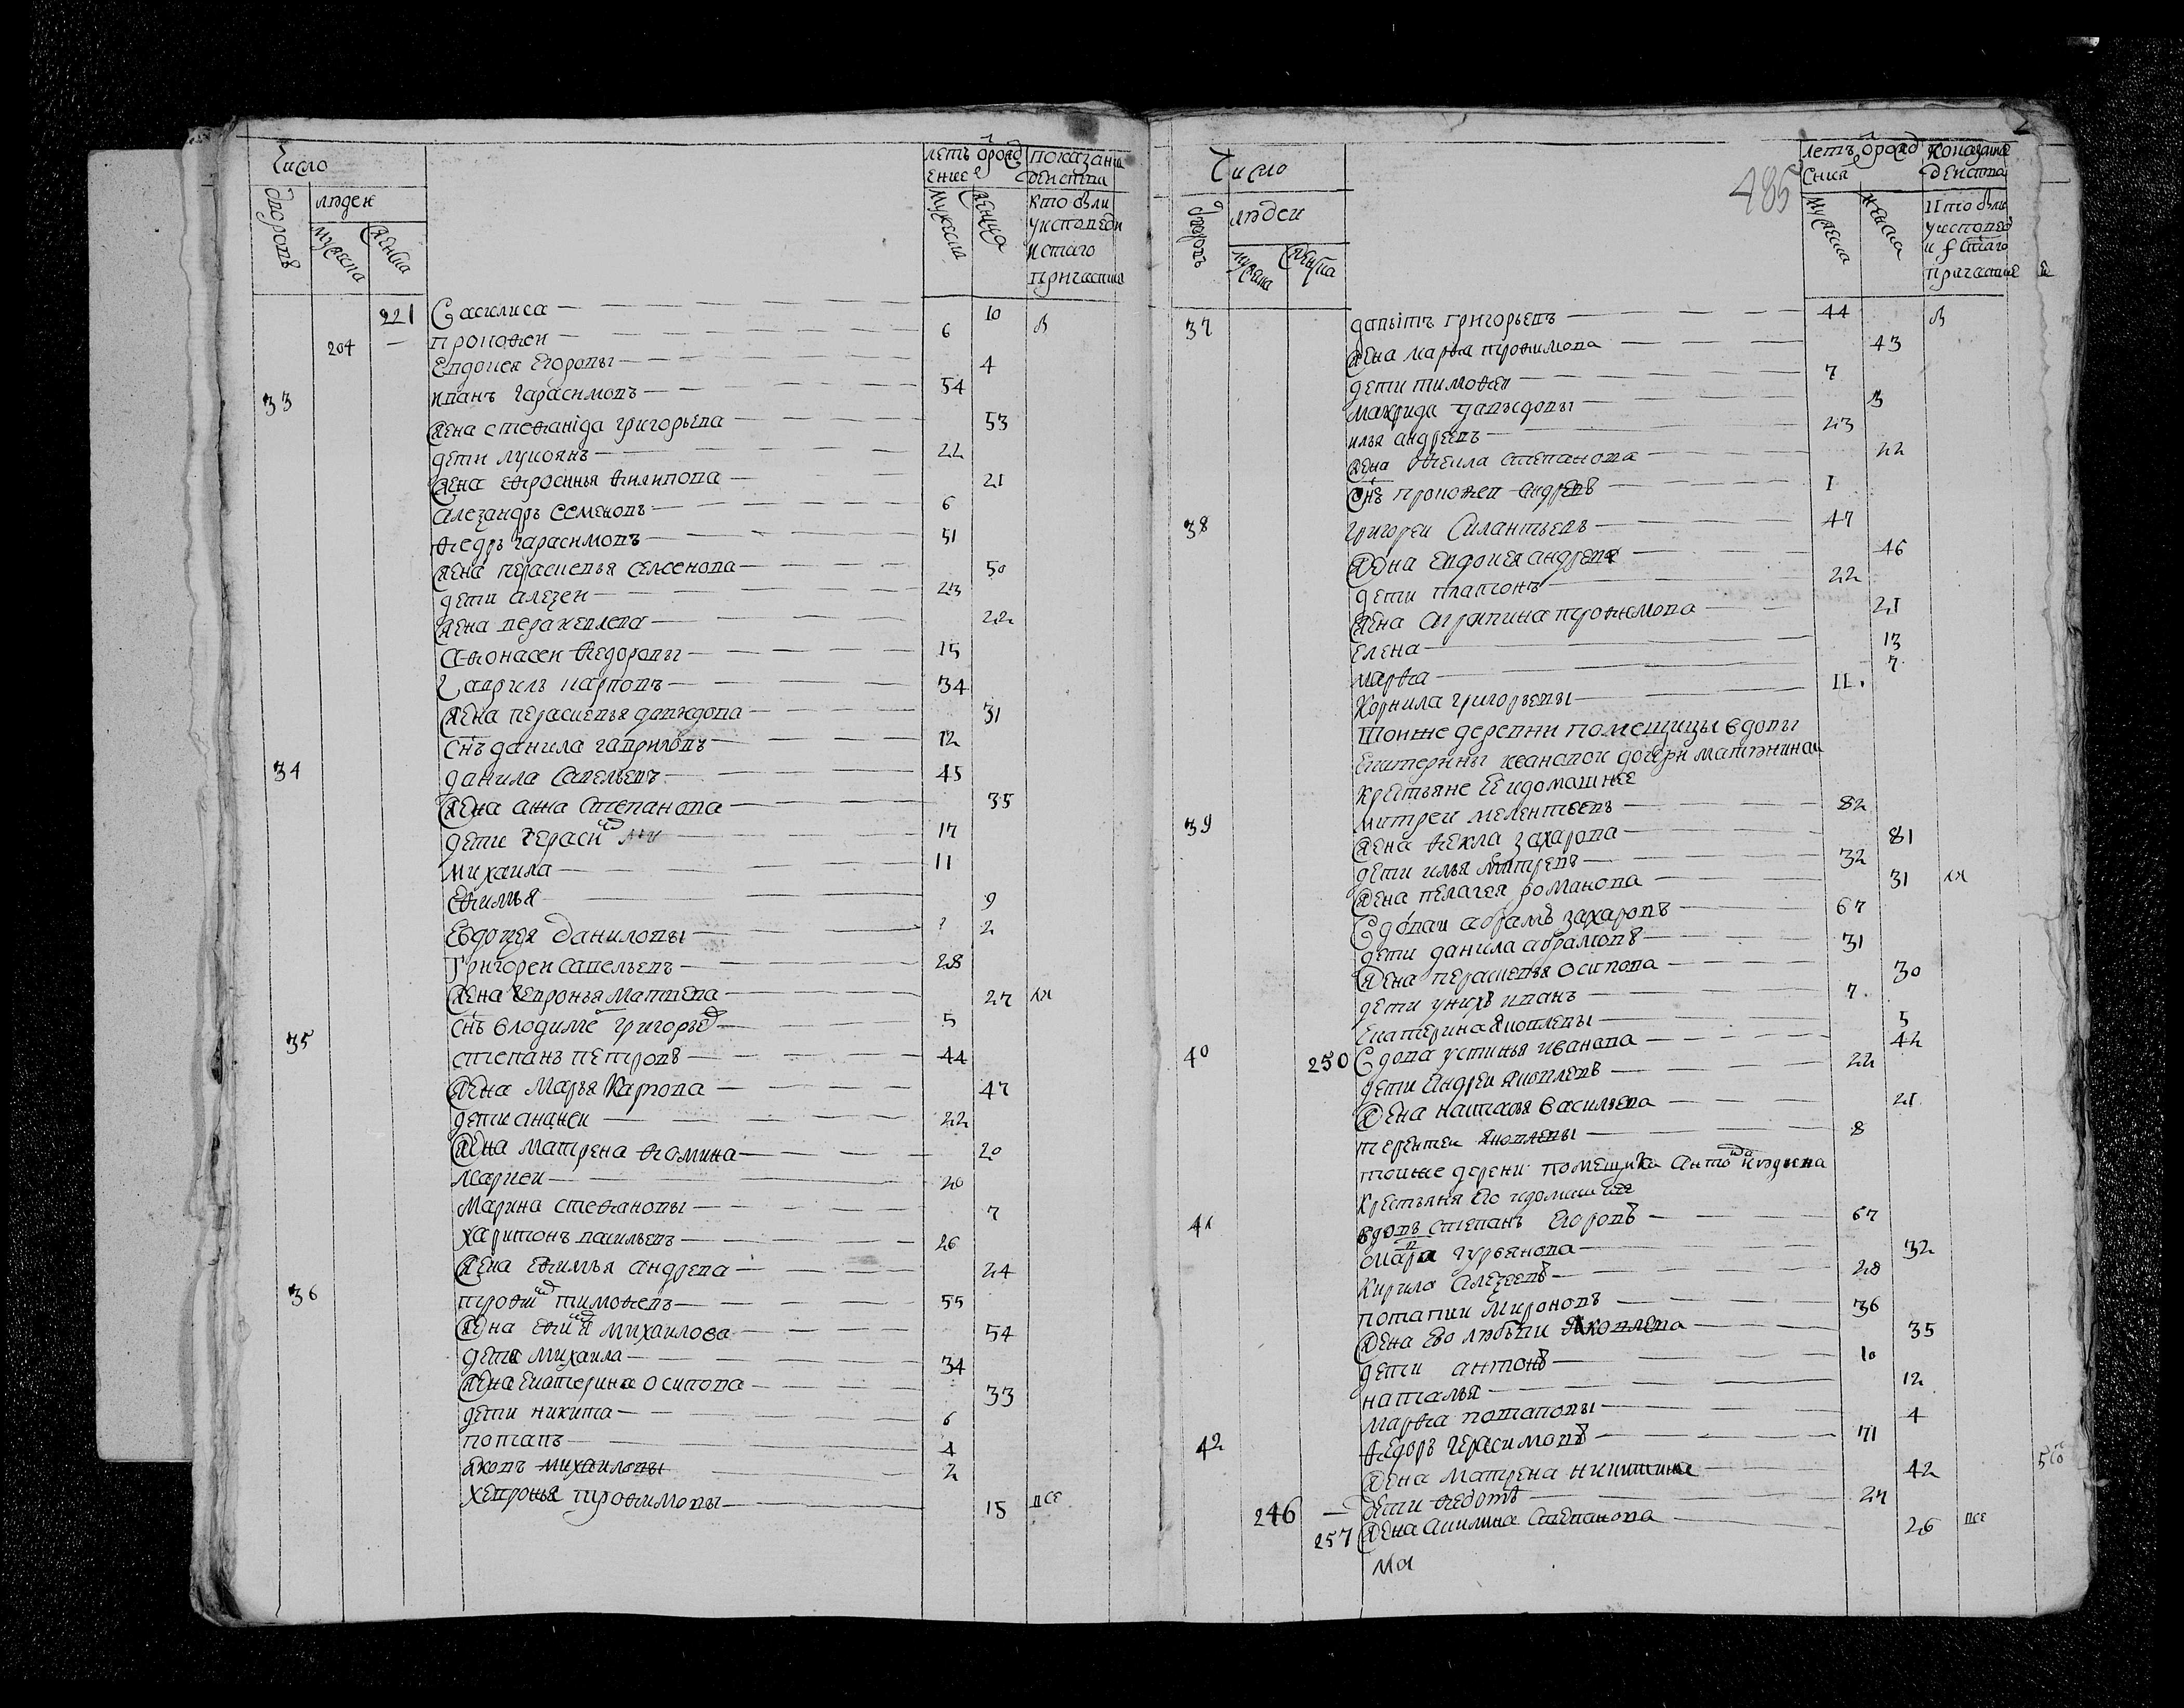 Число
летъ ѿ рожд
ение
показание
действа
дворовъ
людеи
мужеска
женска
мужеска
женска
кто были
у исповеди
и с̃таго
причастия
221 Василиса — 10
204 — прокофеи — 6 в
Евдокея Егоровы — 4
33 иванъ гарасимовъ — 54
жена стефанїда григорьева — 53
дети лукоянъ — 22
жена ефросинья филипова — 21
алеѯандръ семеновъ — 6
федръ гарасимовъ — 51
жена пераскевья семенова — 50
дети алеѯеи — 23
жена — 22
афонасеи федоровы — 15
гаврилъ карповъ — 34
жена пераскевья давыдова — 31
сн̃ъ данила гавриловъ — 12
34 данила савельевъ — 45
жена анна степанова — 35
дети гераси — 17
михаила — 11
ефимья — 9
Евдокея даниловы — 2
григореи савельевъ — 28
жена февронья матвева — 27
сн̃ъ володиме григорье — 5
35 степанъ петровъ — 44
жена Марья Карпова — 47
дети ананеи — 22
жена матрена фомина — 20
маркеи — 20
марина стефановы — 7
харитонъ васильевъ — 26
жена ефимья андрева — 24
36 трофи тимофевъ — 55
жена ефи михаилова — 54
дети михаила — 34
жена екатерина осипова — 33
дети никита — 6
потапъ — 4
яковъ михаиловы — 2
хевронья трофимовы — 15 все
485
Число
летъ ѿ рожд
ения
показание
действа
дворовъ
людеи
мужеска
женска
мужеска
женска
кто были
у исповед
и с̃таго
причастие
37 давыдъ григорьевъ — 44 в
жена марфа трофимова — 43
дети тимофеи — 7
макрида давыдовы — 3
илья андреевъ — 23
жена фекла степанова — 22
сн̃ъ прокофеи андревъ — 1
38 григореи Силантьевъ — 47
жена евдокея андрева — 46
дети платонъ — 22
жена агрипина трофимова — 21
елена — 13
марфа — 7
Корнила григорьевы — 11
тоиже деревни помещицы вдовы
екатерины ивановои дочери
крестьяне ее идомашнее
39 митреи мелентеевъ — 82
жена фекла захарова — 81
дети илья митревъ — 32
жена пелагея романова — 31
вдоваи абрамъ захаровъ — 67
дети данила абрамовъ — 31
жена пераскевья осипова — 30
дети унихъ иванъ — 7
екатерина яковлевы — 5
40 250 вдова устинья иванова — 42
дети андреи яковлевъ — 22
жена наталья васильева — 21
терентеи яковлевы — 8
тоиже дерени помещика
крестьяня его идомашнее
41 вдовъ степанъ егоровъ — 67
мара гурьянова — 32
Кирила алеѯеевъ — 28
потапии мироновъ — 36
жена ево любови яковлева — 35
дети антонъ — 10
наталья — 12
марфа потаповы — 4
42 федоръ герасимовъ — 71
жена матрена никитина — 42
246 — дети федотъ — 27
257 жена акилина степанова — 26 все